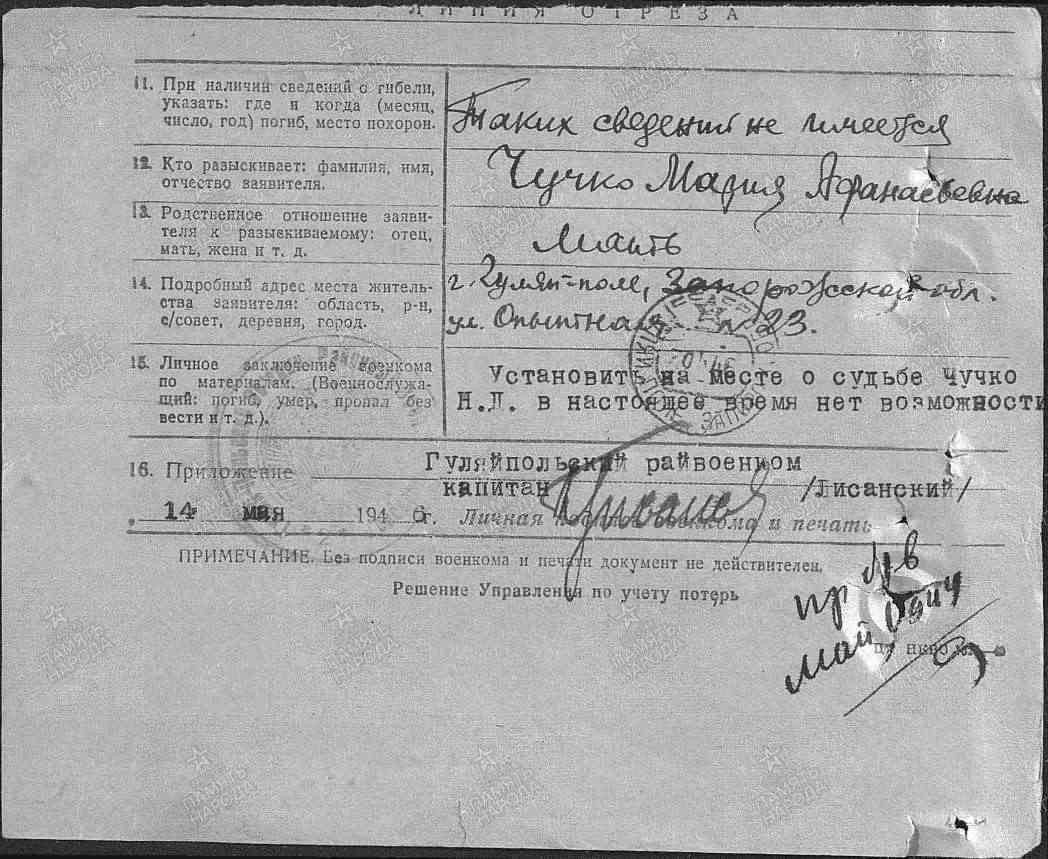 ЛИНИЯ ОТРЕЗА
11. При наличии сведений о гибели,
указать: где и когда (месяц,
число, год) погиб, место похорон.
Таких сведений не имеется
12. Кто разыскивает: фамилия, имя,
отчество заявителя.
Чучко Мария Афанасьевна
13. Родственное отношение заяви-
теля к разыскиваемому: отец,
мать, жена и т. д.
Мать
14. Подробный адрес места житель-
ства заявителя: область, р-н,
с/совет, деревня, город.
г. Гуляй-поле, Запорожской обл.
ул. Опытная № 23.
15. Личное заключение военкома
по материалам. (Военнослужа-
щий: погиб, умер, пропал без
вести и т. д.).
Установить на месте о судьбе Чучко
Н.Л. в настоящее время нет возможности
16. Приложение
Гуляйпольский райвоенком
капитан /Лисанский/
14 мая 1946 г. Личная подпись военкома и печать
ПРИМЕЧАНИЕ. Без подписи военкома и печати документ не действителен.
Решение Управления по учету потерь
пр
май 1944
ПАМЯТЬ
НАРОДА